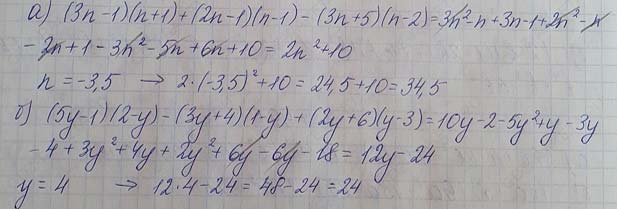 а) (3n-1)(n+1)+(2n-1)(n-1)-(3n+5)(n-2)=3n²-n+3n-1+2n²-n
-2n+1-3n²-5n+6n+10=2n²+10
n=-3,5 → 2·(-3,5)²+10=24,5+10=34,5
б) (5y-1)(2-y)-(3y+4)(1-y)+(2y+6)(y-3)=10y-2-5y²+y-3y
-4+3y²+4y+2y²+6y-6y-18=12y-24
y=4 → 12·4-24=48-24=24